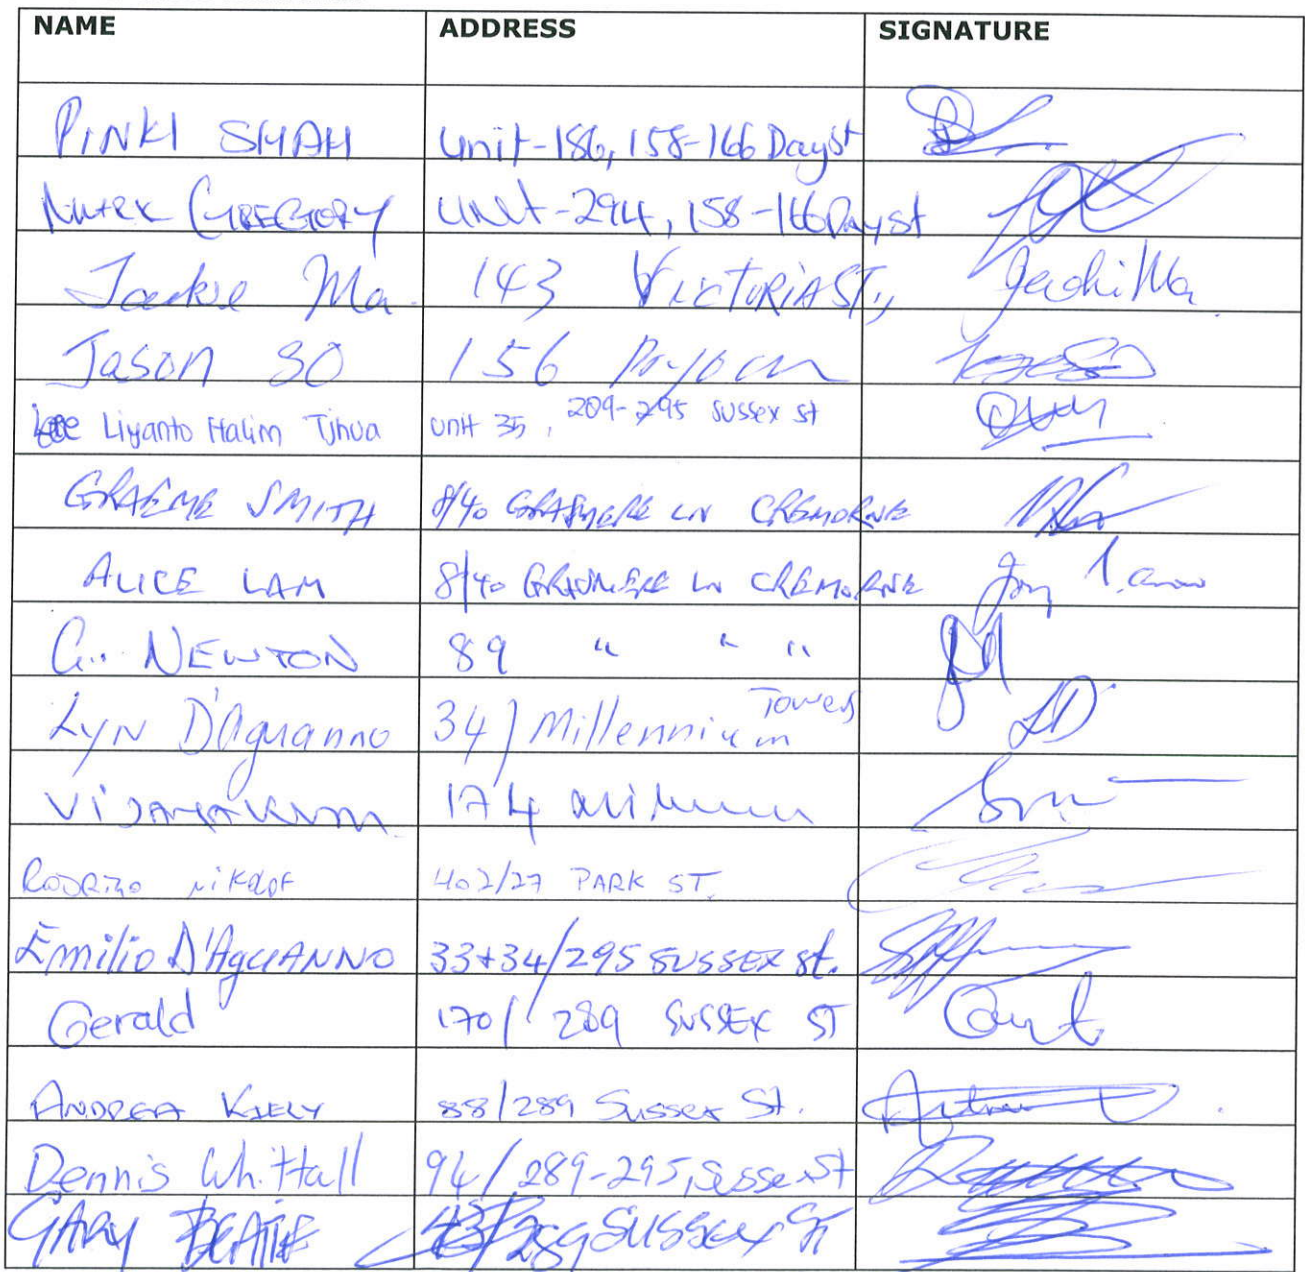 NAME ADDRESS SIGNATURE
PINKI SHAH Unit-186, 158-166 Day st
MARK GREGORY UNIT-294, 158-166 Day st
Jackie Ma 143 VICTORIA ST., Jacki Ma
Jason SO 156
Liyanto Halim Tjhua unit 35, 209-295 Sussex st
GRAEME SMITH 8/40 GRASMERE LN CREMORNE
ALICE LAM 8/40 GRASMERE LN CREMORNE
G. NEWTON 89 " " "
Lyn D'Aguanno 34/Millennium Towers LD
174
402/27 PARK ST.
Emilio D'AguANNO 33+34/295 SUSSEX st.
Gerald 170/289 SUSSEX ST
ANDREA KIELY 88/289 Sussex St.
Dennis Whittall 94/289-295, Sussex st
GARY BEATIE 43/289 SUSSex St